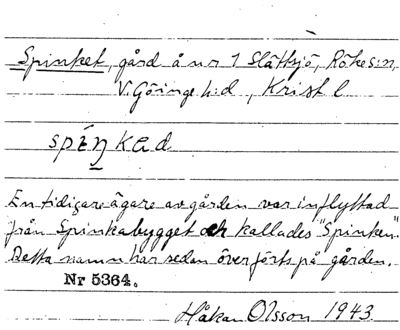 Spinket, gård å nr 1 Slättsjö, Röke s:n,
V. Göinge h:d, Krist l
spíŋkad
En tidigare ägare av gården var inflyttad
från Spinkabygget och kallades "Spinken".
Detta namn har sedan överförts på gården.
Nr 5364.
Håkan Olsson 1943